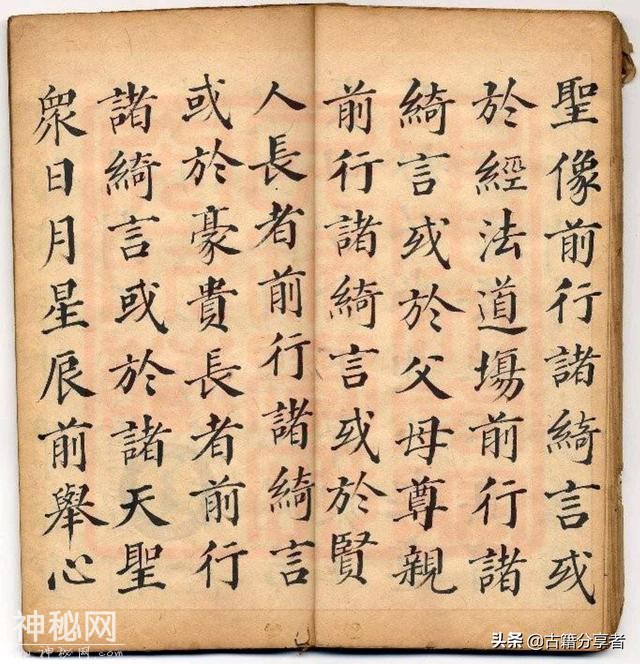 聖像前行諸綺言或
於經法道場前行諸
綺言或於父母尊親
前行諸綺言或於賢
人長者前行諸綺言
或於豪貴長者前行
諸綺言或於諸天聖
眾日月星辰前舉心
神秘网
头条 @古籍分享者